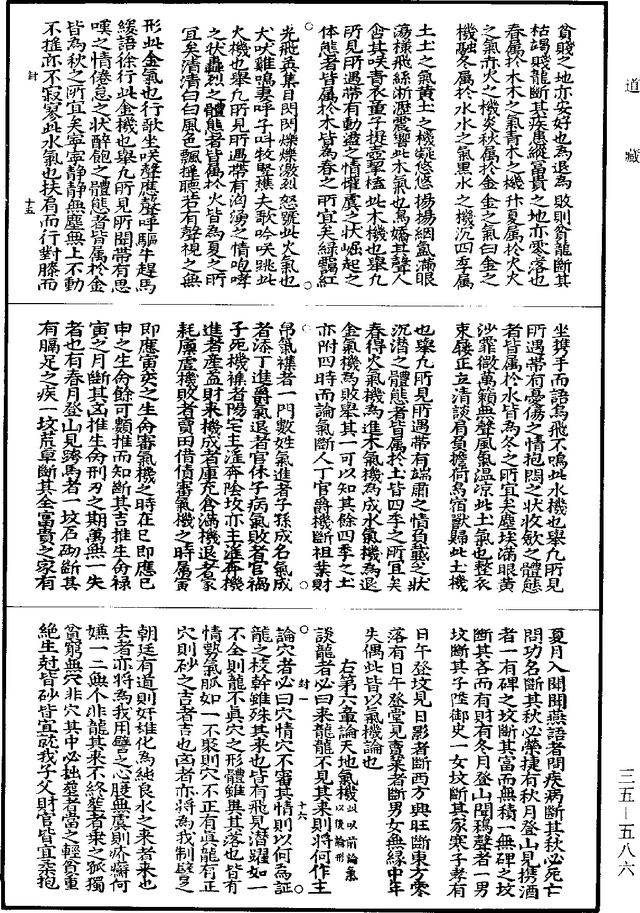 道藏
貧賤之地亦安好也為退為敗則貧龍斷其
枯竭賤龍斷其疾患縱富貴之地亦零落也
春屬於木木之氣青木之機作夏屬於火火
之氣赤火之機炎秋屬於金金之氣白金之
機融冬屬於水水之氣黑水之機沉四季屬
土土之氣黃土之機凝悠悠揚揚絪氳滿眼
蕩樣飛絲淅瀝震響此木氣也鳥嬌其聲人
含其咲青衣童子擬壺挈榼此木機也舉凡
所見所遇帶有動盪之情權虞之狀崛起之
體態者皆屬於木皆為春之所宜矣緑靄紅
光飛英集目閃閃爍爍激烈怒號此火氣也
犬吠雞鳴妻呼子叫牧竪樵夫歌吟咲跳此
火機也舉凡所見所遇帶有洶湧之情咆哮
之狀轟烈之體態者皆屬於火皆為夏之所
宜矣清清白白風色飄揮聽若有聲視之無
形此金氣也行歌坐咲聲應聲呼驅牛趕馬
緩語徐行此金機也舉凡所見所聞帶有思
嘆之情倦怠之狀醉飽之體態者皆屬於金
皆為秋之所宜矣寧寧靜靜無塵無上不動
不推亦不寂寥此水氣也扶肩而行對膝而
封
十五
坐携手而語鳥飛不鳴此水機也舉凡所見
所遇帶有憂傷之情抱悶之狀收斂之體態
者皆屬於水皆為冬之所宜矣塵埃滿眼黃
沙霏微萬籟無聲風氣溫涼此土氣也整衣
束帶正立清談肩負擔荷鳥宿獸歸此土機
也舉凡所見所遇帶有端肅之情負載之狀
沉潜之體態者皆屬於土皆四季之所宜矣
春得火氣機為進木氣機為成水氣機為退
金氣機為敗舉其一可以知其餘四季之土
亦附四時而論氣斷人丁官爵機斷祖葉財
帛氣襍者一門數姓氣進者子孫成名氣成
者添丁進爵氣退者官休子病氣敗者官禍
子死機襍者陽宅主滛奔陰坟亦主滛奔機
進者產益財來機成者庫充倉滿機退者家
耗廩虛機敗者賣田借債審氣機之時屬寅
即應寅亥之生命審氣機之時在巳即應巳
申之生命餘可類推而知斷其吉推生命祿
寅之月斷其凶推生命刑刃之期萬無一失
者也有春月登山見跨馬者一坟石砌斷其
有腸足之疾一坟荒草斷其全富貴之家有
夏月入閣聞燕語者問疾病斷其秋必死亡
問功名斷其秋必榮捷有秋月登山見携酒
者一有碑之坟斷其富而無積一無碑之坟
斷其吝而有則有冬月登山聞鵶聲者一男
坟斷其子陞御史一女坟斷其家寒子孝有
日午登坟見日影者斷西方興旺斷東方零
落有日午登堂見賣菓者斷男女無緣中年
失偶此皆以氣機論也
右第六章論天地氣機此以前論氣以後論形
談龍者必曰來龍龍不見其來則將何作主
封一
十六
論穴者必曰穴情穴不審其情則以何為証
龍之枝幹雖殊其來也皆有飛見潜躍如一
不全則龍不真穴之形體雖異其落也皆有
情墊氣脈如一不聚則穴不正有真龍有正
穴則砂之吉者吉也凶者亦將為我制譬之
朝廷有道則奸雄化為純良水之來者來也
去者亦將為我用譬之心腹無虞則疥癬何
嫌一二無个非龍其來不終塟者乗之狐獨
貧窮無穴非穴其中必拙塟者當之輕賁重
絶生尅皆砂皆宜就我子父財官皆宜柔抱
三五—五八六